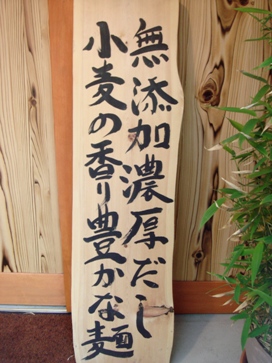 無添加濃厚だし
小麦の香り豊かな麺